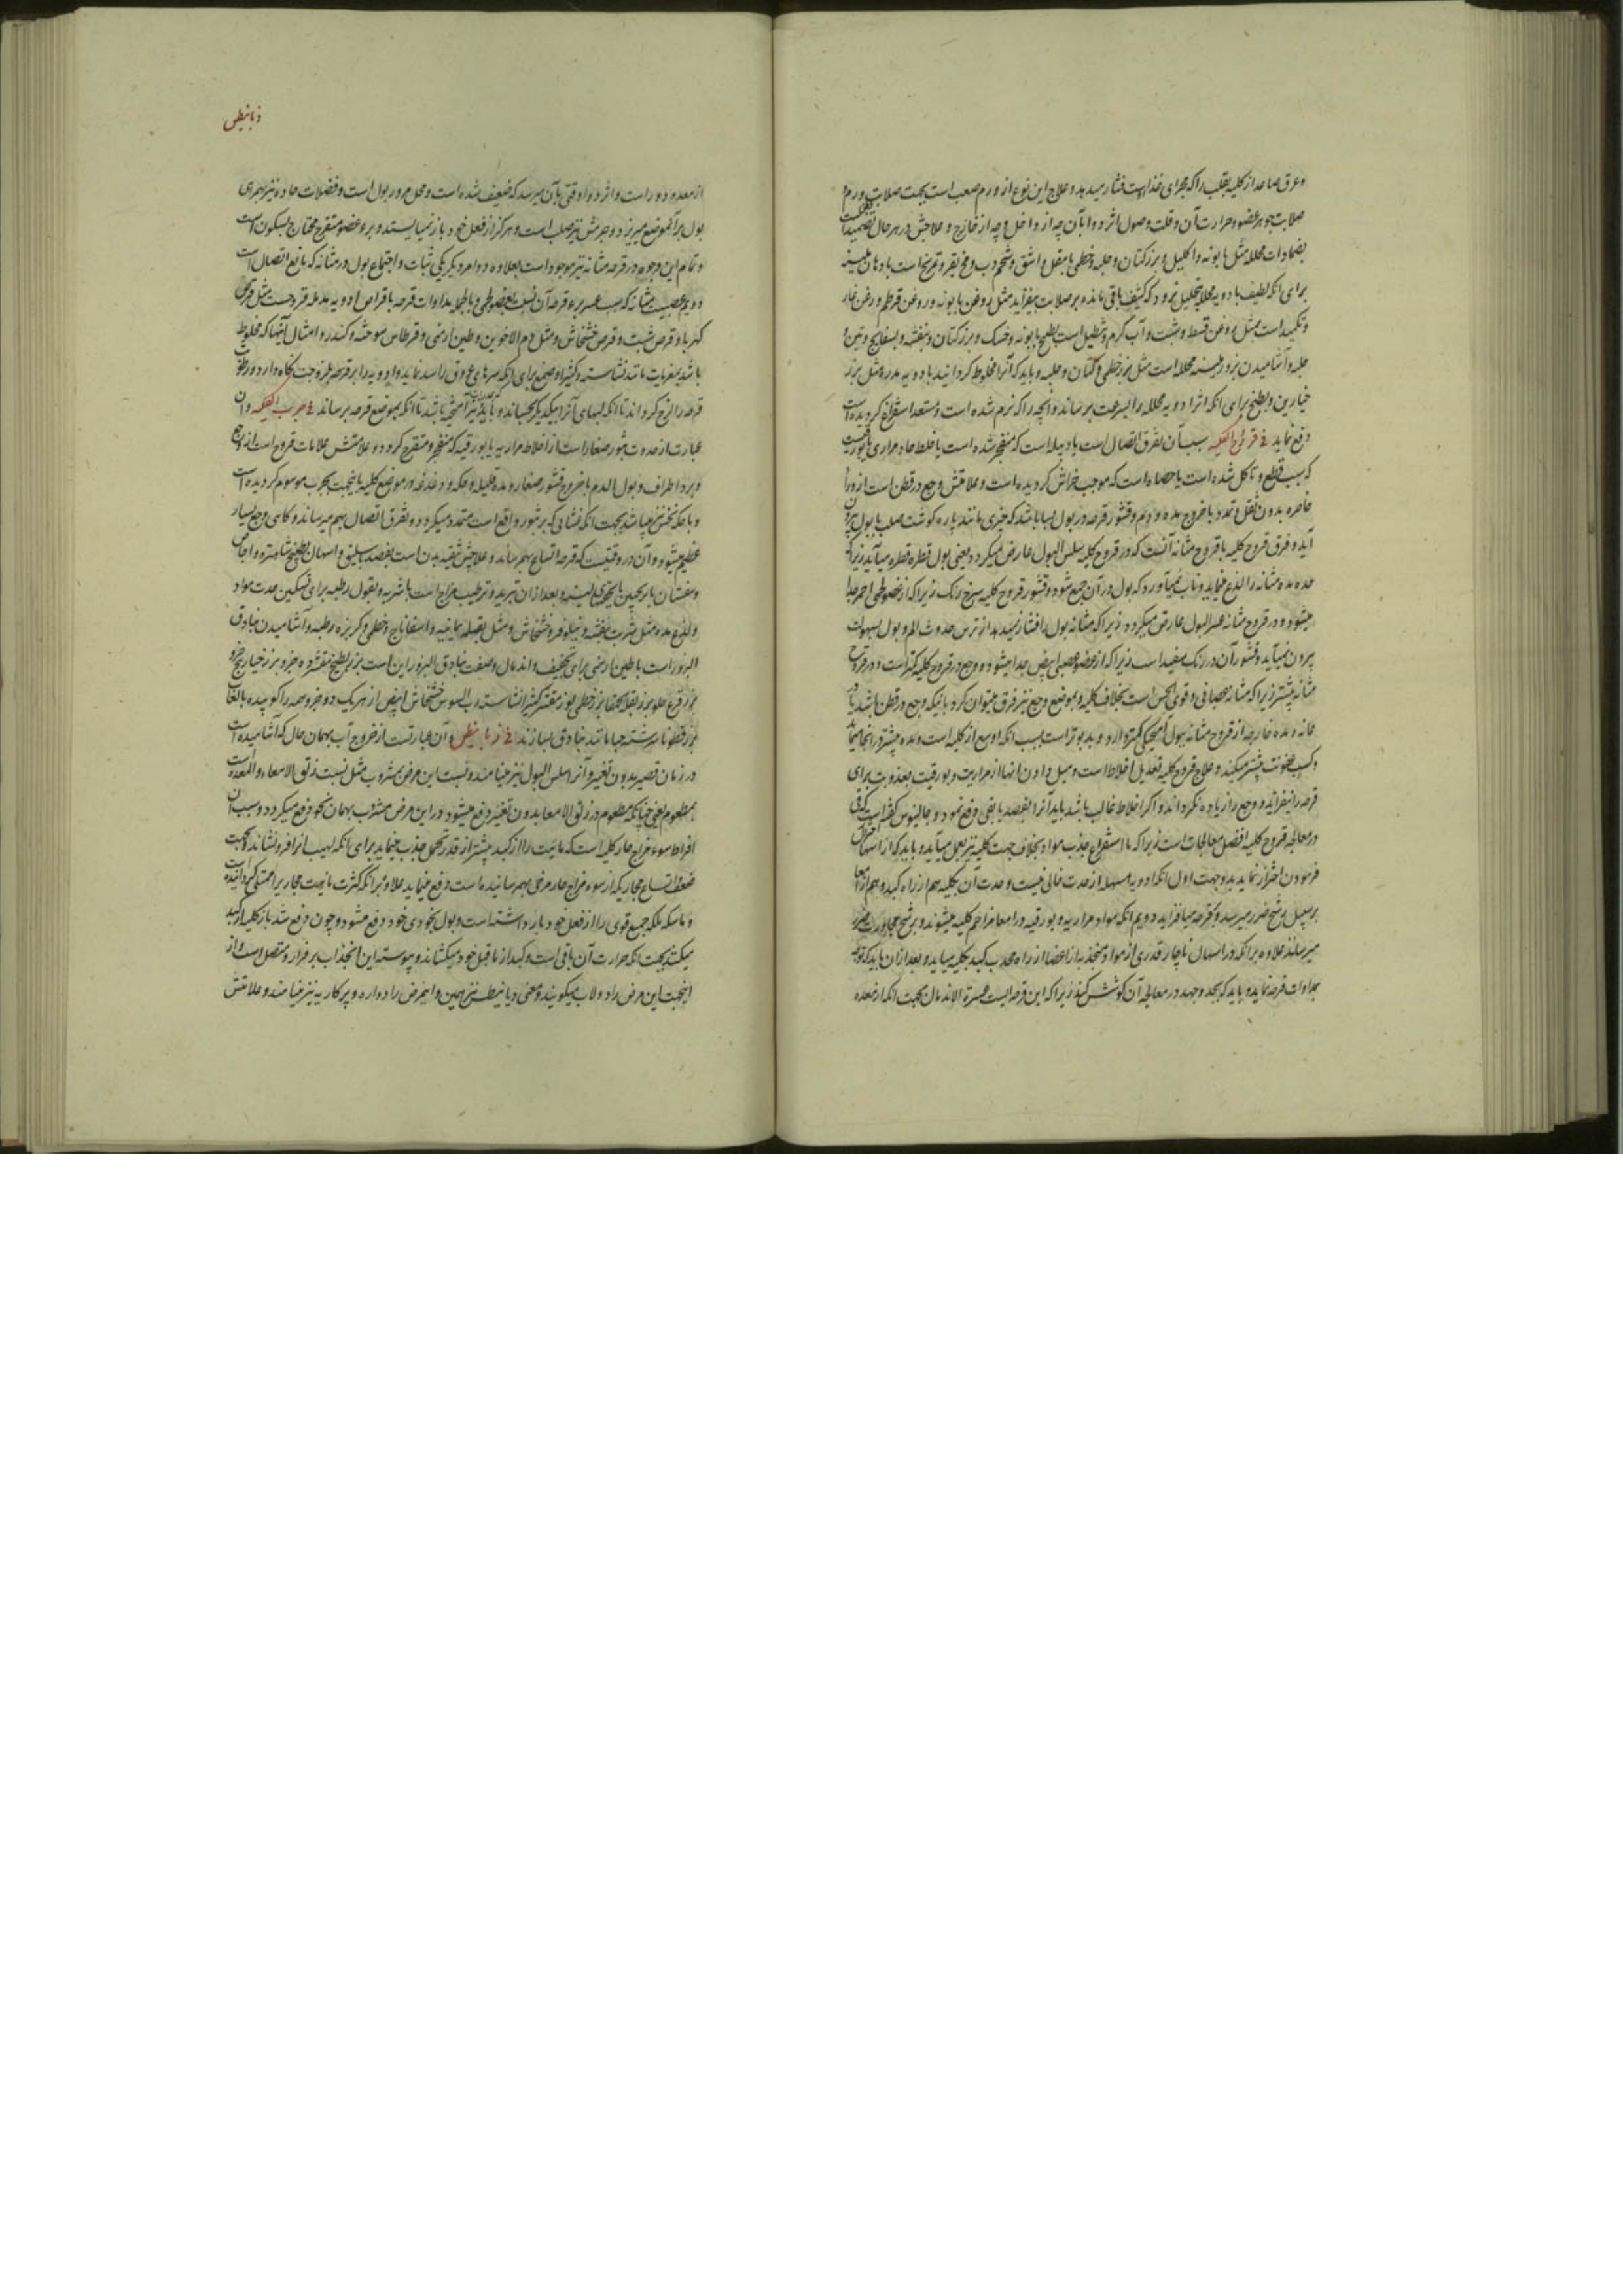 و عرق صاعد از کلیه بقلب را که مجرای غذا است فشار میدهد و علاج این نوع از ورم صعب است بجهت صلابت ورم و
صلابت جوهر عضو و حرارت آن و قلت وصول اثر دوا بآن چه از داخل و چه از خارج و علاجش در هر حال تضمید است
بضمادات محلله مثل بابونه و اکلیل و بزر کتان و حلبه و خطمی با مقل و اشق و شحم دب و مخ بقر و تمریخ است بادهان ملینه
برای آنکه لطیف بادویه محلله بتحلیل نرود که کثیف باقی ماند و بر صلابت بیفزاید مثل روغن بابونه و روغن قرطم و روغن غار
و تکمید است بمثل روغن قسط و شبت و آب گرم و تنطیل است بطبیخ بابونه و خسک و بزر کتان و بنفشه و بسفایج و تین و
حلبه و آشامیدن بزور ملینه محلله است مثل بزر خطمی و کتان و حلبه و باید که آنرا مخلوط گردانید بادویه مدره مثل بزر
خیارین و بطیخ برای آنکه اثر ادویه محلله را بسرعت برساند و آنچه را که نرم شده است و مستعد استفراغ گردیده است
دفع نماید فی قروح الکلیه سبب آن تفرق اتصال است یا دبیله است که منفجر شده است یا خلط حاد مراری یا بورقیست
که سبب قطع و تاکل شده است یا حصاه است که موجب خراش گردیده است و علامتش وجع در قطن است از ورا
خاصره بدون ثقل و تمدد با خروج مده و دم و قشور قرحه در بول و بسا باشد که چیزی مانند پاره گوشت صلب با بول بیرون
آید و فرق قروح کلیه با قروح مثانه آنست که در قروح کلیه سلس البول عارض میگردد یعنی بول قطره قطره میآید زیرا که
حده مده مثانه را لذع مینماید و تاب نمیآورد که بول در آن جمع شود و قشور قروح کلیه سرخ رنگ زیرا که از عضو لحمی احمر جدا
میشود و در قروح مثانه عسر البول عارض میگردد زیرا که مثانه بول را فشار نمیدهد از ترس حدوث الم و بول بسهولت
بیرون نمیآید و قشور آن در رنگ سفید است زیرا که از عضو عصبی ابیض جدا میشود و وجع در قروح کلیه کمتر است و در قروح
مثانه بیشتر زیرا که مثانه عصبانی و قوی الحس است بخلاف کلیه و بموضع وجع نیز فرق میتوان کرد باینکه وجع در قطن باشد یا در
عانه و مده خارجه از قروح مثانه ببول آمیختگی کمتر دارد و بدبوتر است بسبب آنکه اوسع از کلیه است و مده بیشتر در آنجا میماند
و کسب عفونت بیشتر میکند و علاج قروح کلیه تعدیل اخلاط است و میل دادن آنها از مراریت و بورقیت بعذوبت برای
قرحه را نیفزاید و وجع را زیاده نگرداند و اگر اخلاط غالب باشد باید آنرا بفصد یا بقی دفع نمود و جالینوس گفته است که قی
در معالجه قروح کلیه افضل معالجات است زیرا که با استفراغ جذب مواد بخلاف جهت کلیه نیز بعمل میآید و باید که از اسهال
فرمودن احتراز نماید بدو جهت اول آنکه ادویه مسهله از حدت خالی نیست و حدت آن بکلیه هم از راه کبد و هم از امعا
بر سبیل ترشح ضرر میرسد و بقرحه میافزاید دویم آنکه مواد مراریه و بورقیه در امعا مزاحم کلیه میشوند و بر شح مجاورت ضرر
میرسانند علاوه بر آنکه در اسهال ناچار قدری از مواد منجذبه از اعضا از راه محدب کبد بکلیه میآید و بعد از آن باید که توجه
بمداوات قرحه نماید و باید که بجد و جهد در معالجه آن کوشش کنند زیرا که این قرحه ایست عسرة الاندمال بجهت آنکه از معده
ذیابیطس
از معده دور است و اثر دوا وقتی بآن میرسد که ضعیف شده است و محل مرور بول است و فضلات حاده نیز بهمرای
بول بر آنموضع میریزد و جرمش نیز صلب است و هرگز از فعل خود باز نمیایستد و برء عضو متقرح محتاج بسکون است
و تمام این وجوه در قرحه مثانه نیز موجود است بعلاوه دو امر دیگر یکی ثبات و اجتماع بول در مثانه که مانع اتصال است
دویم عصبیت مثانه که سبب عسر برء قرحه آن نسبت بعضو لحمی و بالجمله مداوات قرحه باقراص ادویه مدمله قرحه است مثل قرص
کهربا و قرص شبت و قرص خشخاش و مثل دم الاخوین و طین ارمنی و قرطاس سوخته و کندر و امثال آنها که مخلوط
باشد بمغریات مانند نشاسته و کثیرا و صمغ برای آنکه سرهای عروق را سد نماید و ادویه را بر قرحه بلزوجت نگاه دارد و رطوبت
قرحه را لزج گرداند تا آنکه لبهای آنرا بیکدیگر بچسباند و باید که نیز آمیخته باشد تا آنکه بموضع قرحه برساند فی جرب الکلیه و آن
عبارت از حدوث بثور صغار است از اخلاط مراریه یا بورقیه که منفجر و متقرح گردد و علامتش علامات قروح است از وجع
و برد اطراف و بول الدم با خروج قشور صغار و مده قلیله و حکه و دغدغه در موضع کلیه باینجهت بجرب موسوم گردیده است
و با حکه نخس نیز میباشد بجهت آنکه غشائی که بر بثور واقع است متمدد میگردد و تفرق اتصال بهم میرساند و گاهی وجع بسیار
عظیم میشود و آن در وقتیست که قرحه اتساع بهم رساند و علاجش تنقیه بدن است بفصد باسلیق و اسهال بطبیخ شاهتره و اجاص
و سنقبل از بریدن و بعد از آن تبرید و ترطیب مزاج است باشربه و بقول رطبه برای تسکین حدت مواد
و لذع مده مثل شربت بنفشه و نیلوفر و خشخاش و مثل بقله یمانیه و اسفاناج و خطمی و کزبره رطبه و آشامیدن بنادق
البزور است با طین ارمنی برای تجفیف و اندمال وصفت بنادق البزور این است بزر بطیخ مقشر ده جزو بزر خیار پنج جزو
بزر قرع حلو بزر بقله الحمقا بزر خطمی لوز مقشر کثیرا نشاسته رب السوس خشخاش ابیض از هر یک دو جزو همه را کوبیده بالعاب
بزر قطونا سرشته حبها مانند بنادق بسازند فی ذیابیطس و آن عبارتست از خروج آب بهمان حال که آشامیده است
در زمان قصیر بدون تغییر و آنرا سلس البول نیز مینامند و نسبت این مرض بمشروب مثل نسبت زلق الامعاء و المعده است
بمطعوم یعنی چنانکه مطعوم در زلق الامعا بدون تغییر دفع میشود در این مرض مشروب بهمان نحو دفع میگردد و سبب آن
افراط سوء مزاج حار کلیه است که مائیت را از کبد بیشتر از قدر تحمل جذب مینماید برای آنکه لهیب آنرا فرو نشاند و بجهت
ضعف و اتساع مجاریکه از سوء مزاج حار مرخی بهم رسانیده است دفع مینماید علاوه بر آنکه کثرت مائیت مجاریرا ممتلی گردانیده است
و ماسکه بلکه جمیع قوی را از فعل خود باز داشته است و بول بخودی خود دفع میشود و چون دفع شد باز کلیه از کبد
میکشد بجهت آنکه حرارت آن باقی است و کبد از ماقبل خود میکشاند و پیوسته این انجذاب بر قرار و متصل است و از
اینجهت این مرض را دولاب میگویند و معنی دیابیطس نیز همین و اینمرض را دواره و پرکاریه نیز مینامند و علامتش